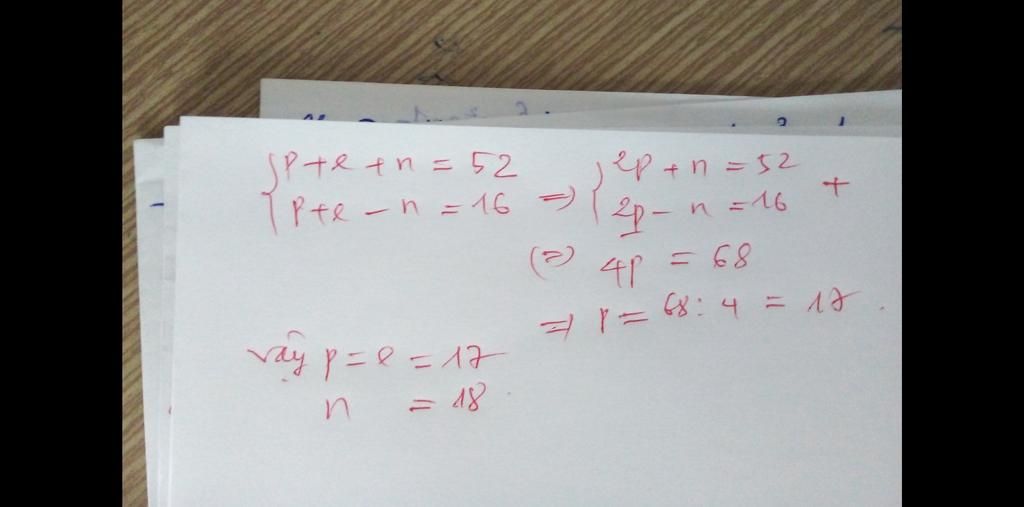 p+e+n = 52 => 2p + n = 52
p+e - n = 16 2p - n = 16 +
(=) 4p = 68
=> p = 68 : 4 = 17.
vậy p = e = 17
n = 18